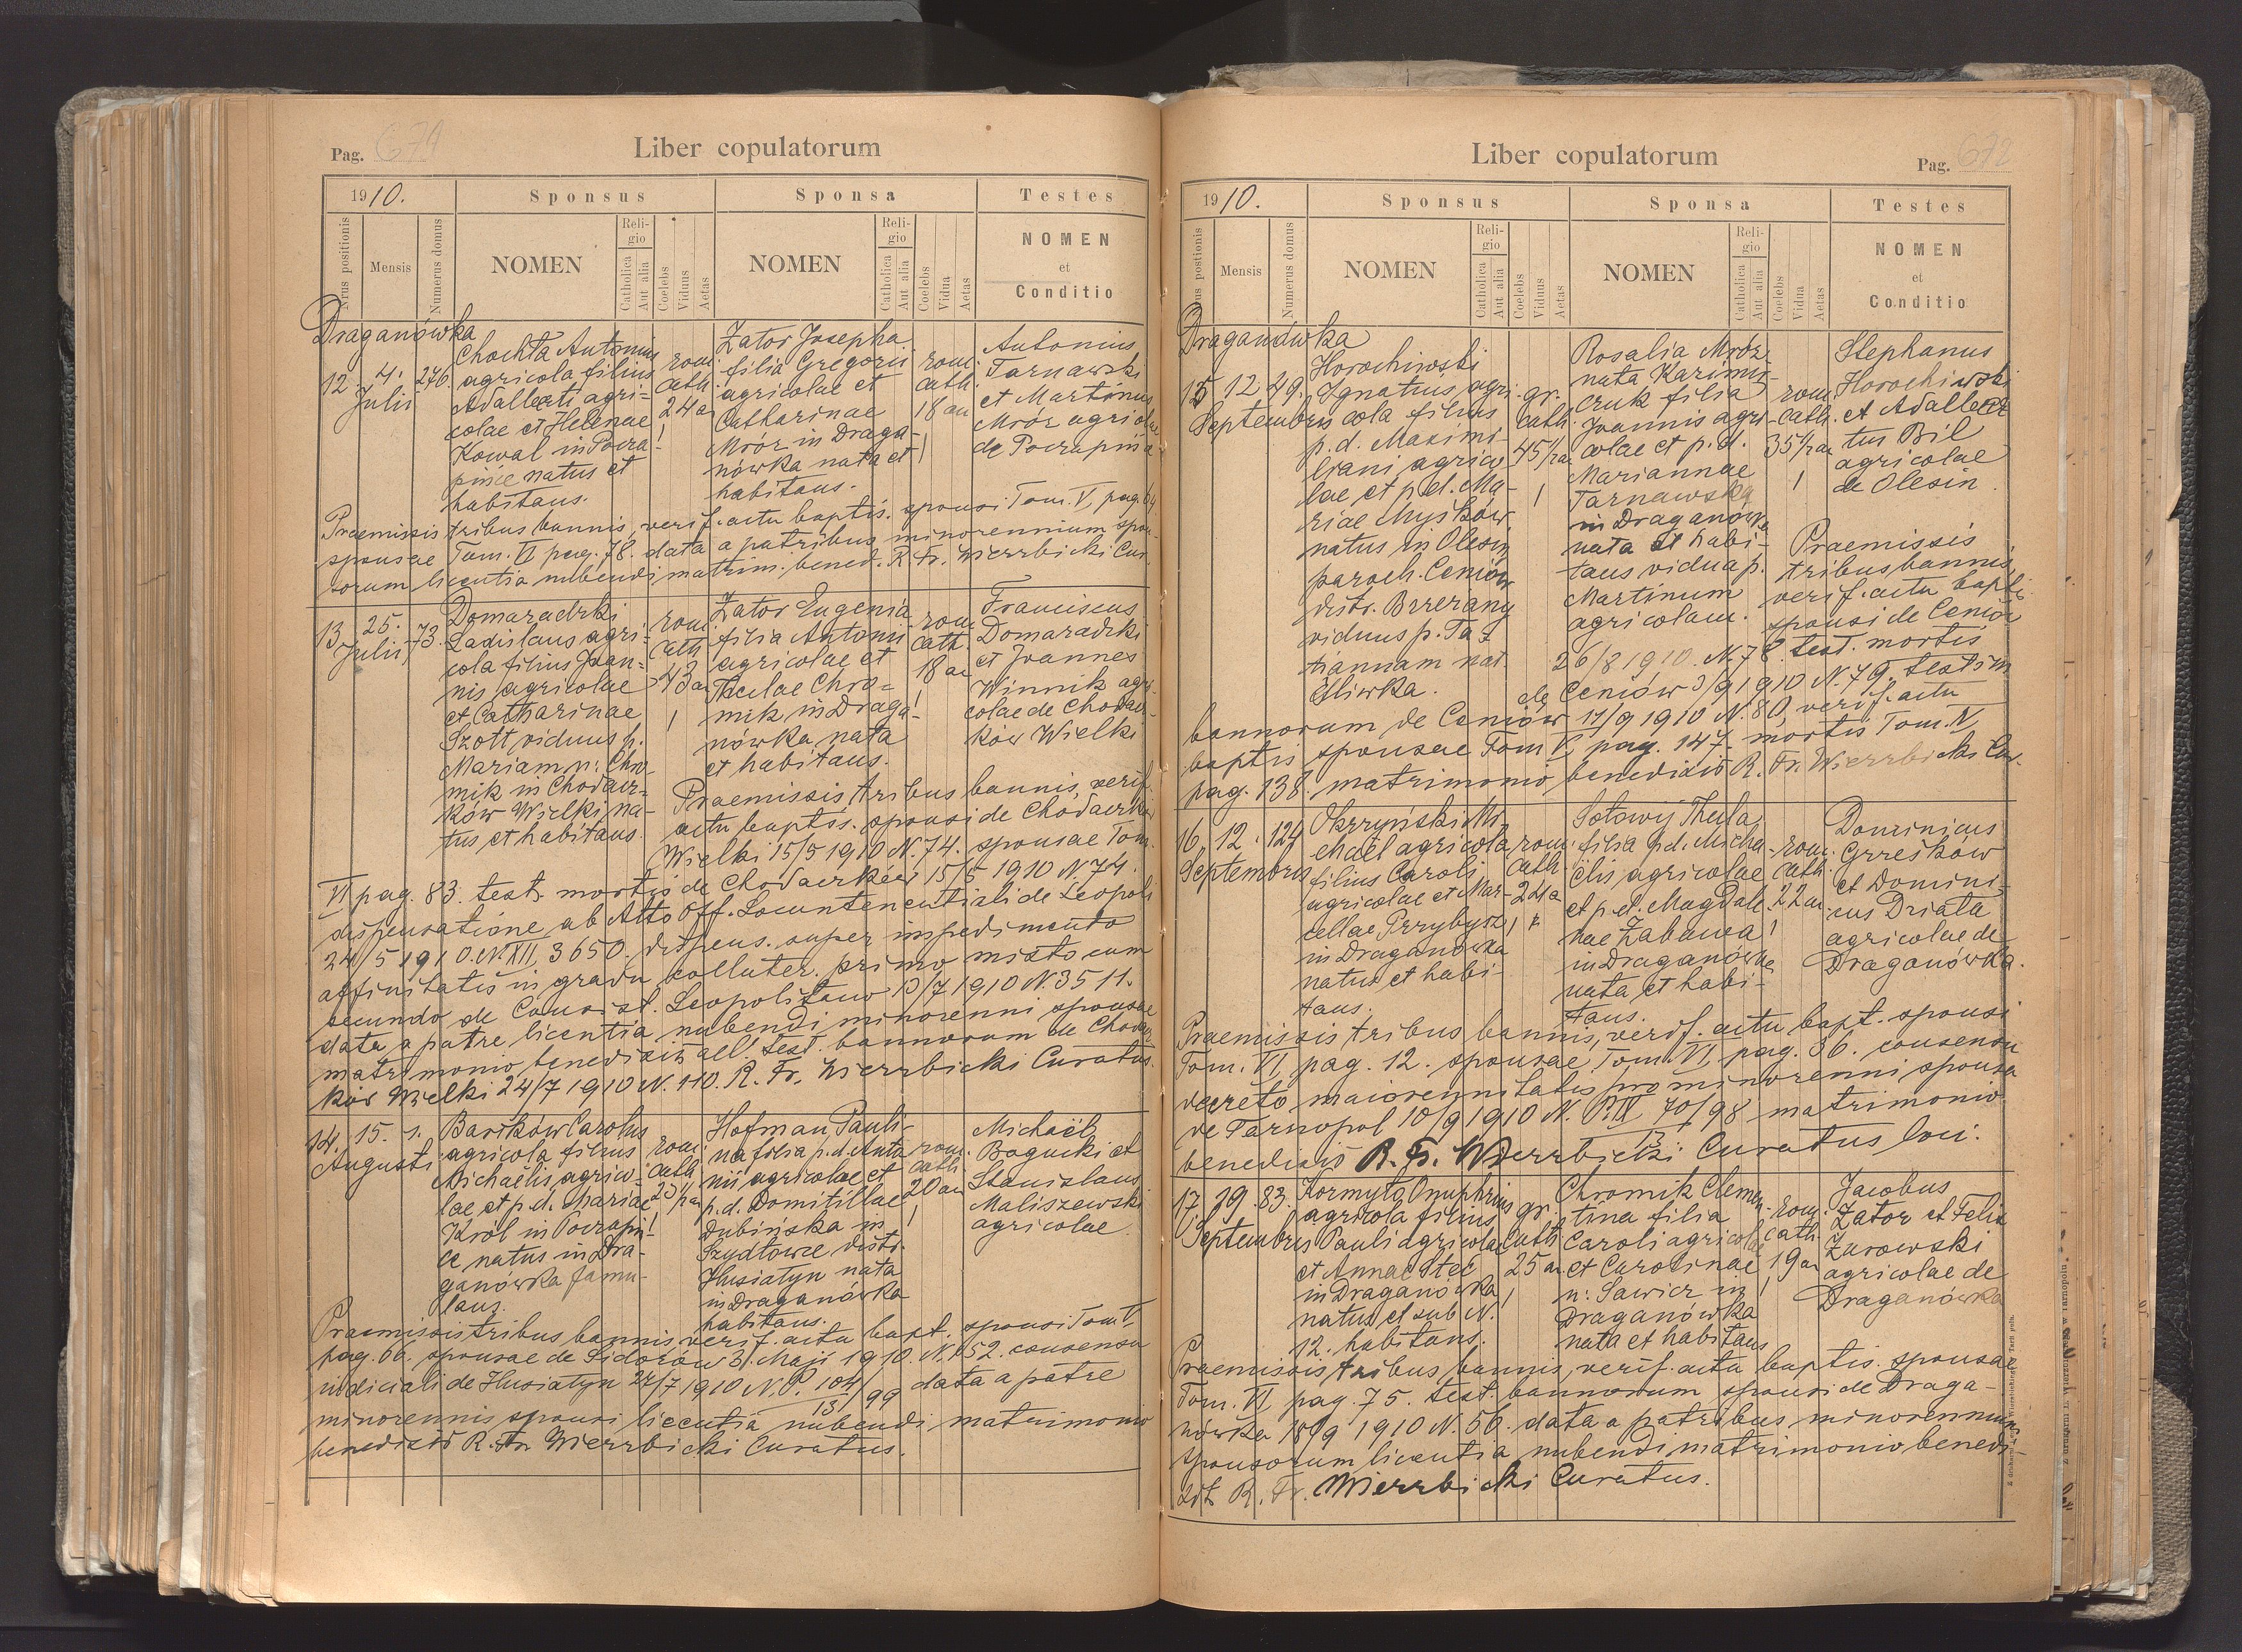 Pag. 671
Liber copulatorum
1910.
Sponsus
Sponsa
Testes
Nrus positionis
Mensis
Numerus domus
NOMEN
Religio
Catholica
Aut alia
Coelebs
Viduus
Aetas
NOMEN
Religio
Catholica
Aut alia
Coelebs
Vidua
Aetas
NOMEN
et
Conditio
Draganówka
12.
4.
Julii
276.
Chochta Antonius
agricola filius
Adalberti agri-
colae et Helenae
Kowal in Pocra-
pińce natus et
habitans.
rom.
cath.
24 an
1
Zator Josepha
filia Gregorii
agricolae et
Catharinae
Mróz in Draga-
nówka nata et
habitans.
rom.
cath.
18 an
1
Antonius
Tarnawski
et Martinus
Mróz agricolae
de Poczapińce
Praemissis tribus bannis, verif. actu baptis. sponsi Tom. V, pag. 64
sponsae Tom. VI pag. 78. data a patribus minorennium spon-
sorum licentia nubendi matrim. bened. R. Fr. Wierzbicki Cur.
13.
25.
Julii
73.
Domaradzki
Ladislaus agri-
cola filius Joan-
nis agricolae
et Catharinae
Szott viduus p.
Mariam n. Chro-
mik in Chodacz-
ków Wielki na-
tus et habitans.
rom.
cath.
43 an
1
Zator Eugenia
filia Antonii
agricolae et
Theclae Chro-
mik in Draga-
nówka nata
et habitans.
rom.
cath.
18 an
1
Franciscus
Domaradzki
et Joannes
Winnik agri-
colae de Chodacz-
ków Wielki
Praemissis tribus bannis, verif.
actu baptis. sponsi de Chodaczków
Wielki 15/5 1910 N. 74. sponsae Tom.
VI pag. 83. test. mortis de Chodaczków 15/5 1910 N. 74.
dispensatione ab Alto Off. Locumtenentiali de Leopoli
24/5 1910. N. XII, 3650. dispens. super impedimento
affinitatis in gradu collater. primo mixto cum
secundo de Consist. Leopolitano 13/7 1910 N. 3511.
data a patre licentia nubendi minorenni sponsae
matrimonio benedixit all. test. bannorum de Chodacz-
ków Wielki 24/7 1910 N. 110. R. Fr. Wierzbicki Curatus.
14.
15.
Augusti
1.
Barików Carolus
agricola filius
Michaëlis agrico-
lae et p. d. Mariae
Król in Poczapiń-
ce natus in Dra-
ganówka famu-
laus.
rom.
cath.
23 1/2 an
1
Hofman Pauli-
na filia p. d. Anto-
nii agricolae et
p. d. Domitillae
Dubińska in
Szydłowce distr.
Husiatyn nata
in Draganówka
habitans.
rom.
cath.
20 an
1
Michaël
Bogucki et
Stanislaus
Maliszewski
agricolae
Praemissis tribus bannis, verif. actu bapt. sponsi Tom V,
pag. 66. sponsae de Sidorów 31. Maji 1910. N. 152. consensu
iudiciali de Husiatyn 22/7 1910 N. P. 104/99 data a patre
13
minorennis sponsi licentia nubendi matrimonio
benedixit R. Fr. Wierzbicki Curatus.
Liber copulatorum
Pag. 672
1910.
Sponsus
Sponsa
Testes
Nrus positionis
Mensis
Numerus domus
NOMEN
Religio
Catholica
Aut alia
Coelebs
Viduus
Aetas
NOMEN
Religio
Catholica
Aut alia
Coelebs
Vidua
Aetas
NOMEN
et
Conditio
Draganówka
15
12
Septembris
49.
Horochiwski
Ignatius agri-
cola filius
p. d. Maximi-
liani agrico-
lae et p. d. Ma-
riae Myśków
natus in Olesin
paroch. Ceniów
distr. Brzeżany
viduus p. Ta-
tiannam nat.
Śliwka.
gr.
cath.
45 1/2 an
1
Rosalia Mróz
nata Kazimir-
czuk filia
Joannis agri-
colae et p. d.
Mariannae
Tarnawska
in Draganówka
nata et habi-
tans vidua p.
Martinum
agricolam.
rom.
cath.
35 1/2 an
1
Stephanus
Horochiwski
et Adalber-
tus Bil
agricolae
de Olesin.
Praemissis
tribus bannis,
verif. actu bapti.
sponsi de Ceniów
26/8 1910. N. 78. test. mortis
de Ceniów 3/9 1910 N. 79, testim.
bannorum de Ceniów 17/9 1910 N. 80, verif. actu
baptis sponsae Tom V, pag. 147. mortis Tom. V,
pag. 138. matrimonio benedixit R. Fr. Wierzbicki Cur.
16.
12.
Septembris
124
Okrzyński Mi-
chaël agricola
filius Caroli
agricolae et Mar-
cellae Przybysz
in Draganówka
natus et habi-
tans.
rom.
cath.
24 a
1
Sołowij Thecla
filia p. d. Micha-
ëlis agricolae
et p. d. Magdale-
nae Zabawa
in Draganówka
nata et habi-
tans.
rom.
cath.
22 an
1
Dominicus
Grześków
et Domini-
cus Driata
agricolae de
Draganówka.
Praemissis tribus bannis, verif. actu bapt. sponsi
Tom. VI, pag. 12. sponsae Tom. VI, pag. 36. consensu
decreto maiorennitatis pro minorenni sponsa
de Tarnopol 10/9 1910 N. P. IV 70/98 matrimonio
13
benedixit R. Fr. Wierzbicki Curatus loci.
17.
19.
Septembris
83.
Kormyło Onuphrius
agricola filius
Pauli agricolae
et Annae Stec
in Draganówka
natus et sub N.
12. habitans.
gr.
cath.
25 an
1
Chromik Clemen-
tina filia
Caroli agricolae
et Carolinae
n. Sawicz in
Draganówka
nata et habitans
rom.
cath.
19 an
1
Jacobus
Zator et Felix
Żurowski
agricolae de
Draganówka
Praemissis tribus bannis, verif. actu baptis. sponsae
Tom. VI, pag. 75. test. bannorum sponsi de Draga-
nówka 18/9 1910 N. 56. data a patribus minorennium
sponsorum licentia nubendi matrimonio benedi-
xit R. Fr. Wierzbicki Curatus.